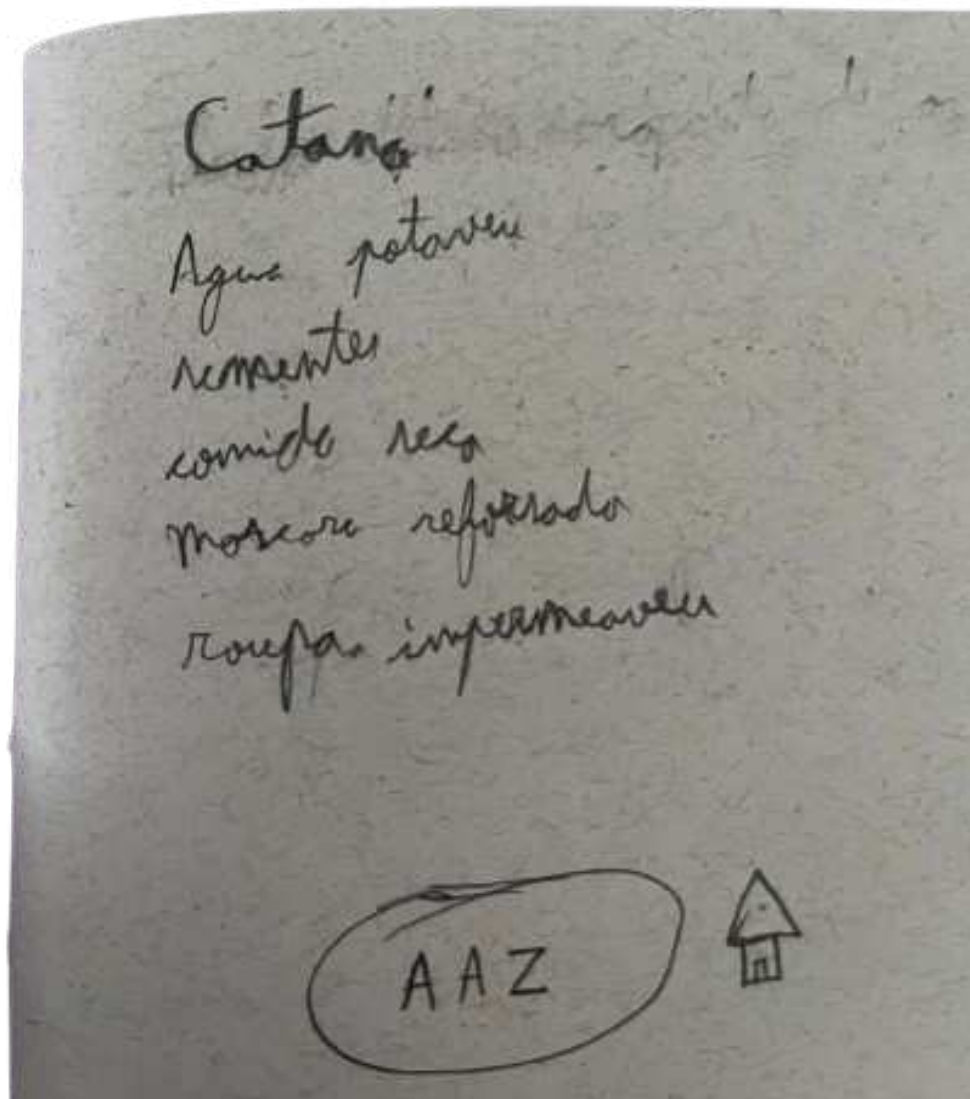 Catana
Agua potaveu
sementes
comida seca
mascara reforsada
roupa impermeaveu
AAZ